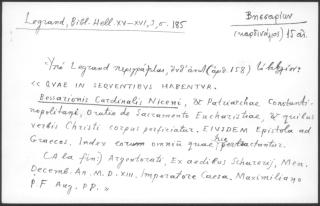 Legrand, Bibl. Hell. XV-XVI, 3, σ. 185
Βησσαρίων
(καρδινάλιος) 15 αἰ.
Ὑπὸ Legrand περιγράφεται, ὑπ' ἀριθ. 158)
« QVAE IN SEQVENTIBVS HABENTVR.
Bessarionis Cardinalis Niceni, & Patriarchae Constanti-
nopolitani, Oratio de Sacramento Eucharistiae, & quibus
verbis Christi corpus perficiatur. EIVSDEM Epistola ad
Graecos. Index eorum omniũ quae hic pertractantur.
(A la fin:) Argentorati, Ex aedibus Schurerij, Men.
Decemb. An. M.D.XIII. Imperatore Caesa. Maximiliano
P.F. Aug. PP. »